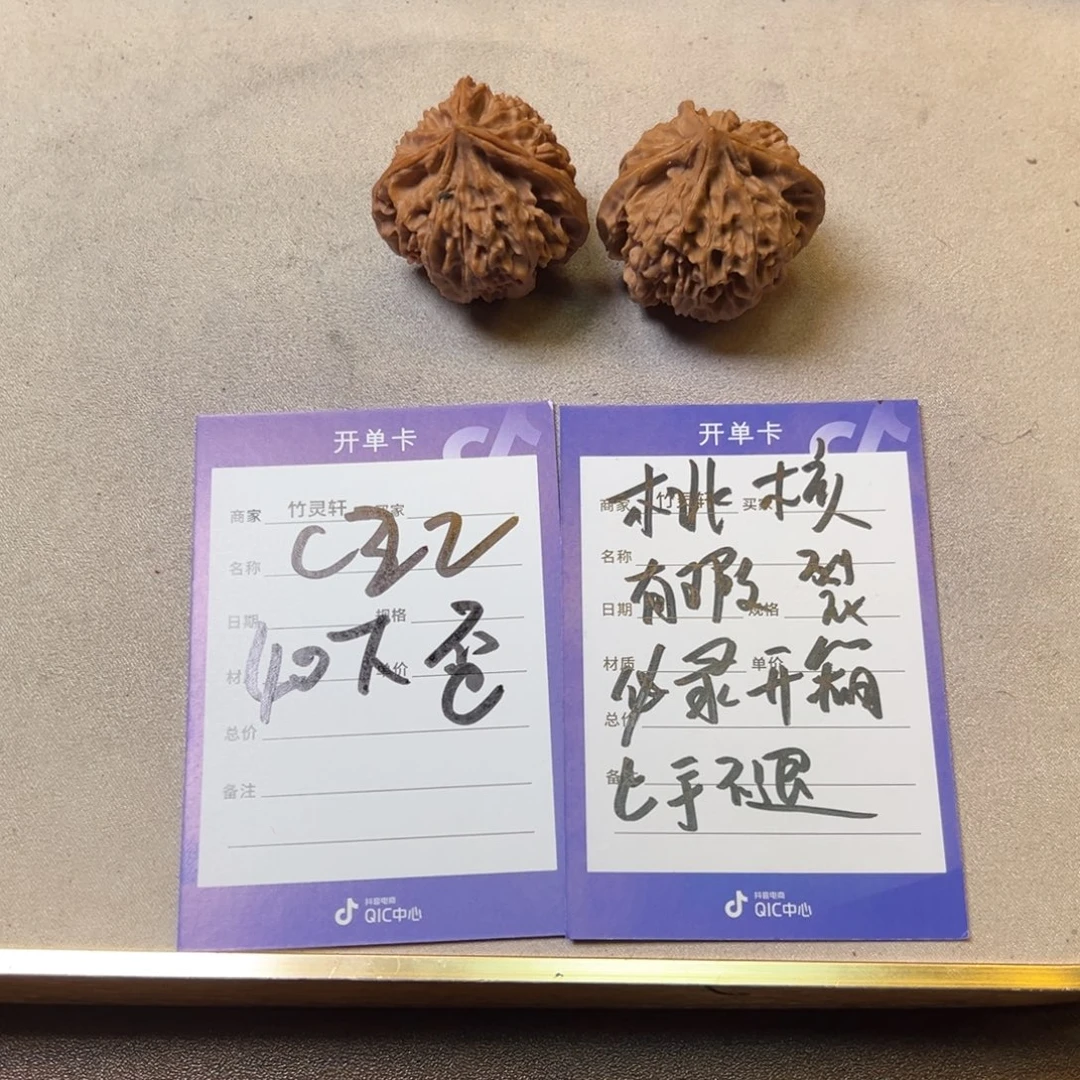 开单卡
商家 竹灵轩 买家
名称
日期 规格
材 单价
总价
备注
抖音电商
QIC中心
开单卡
桃核
商家 竹灵轩 买家
名称
有瑕裂
日期 规格
材质 单价
必录开箱
总价
备注
上手不退
抖音电商
QIC中心